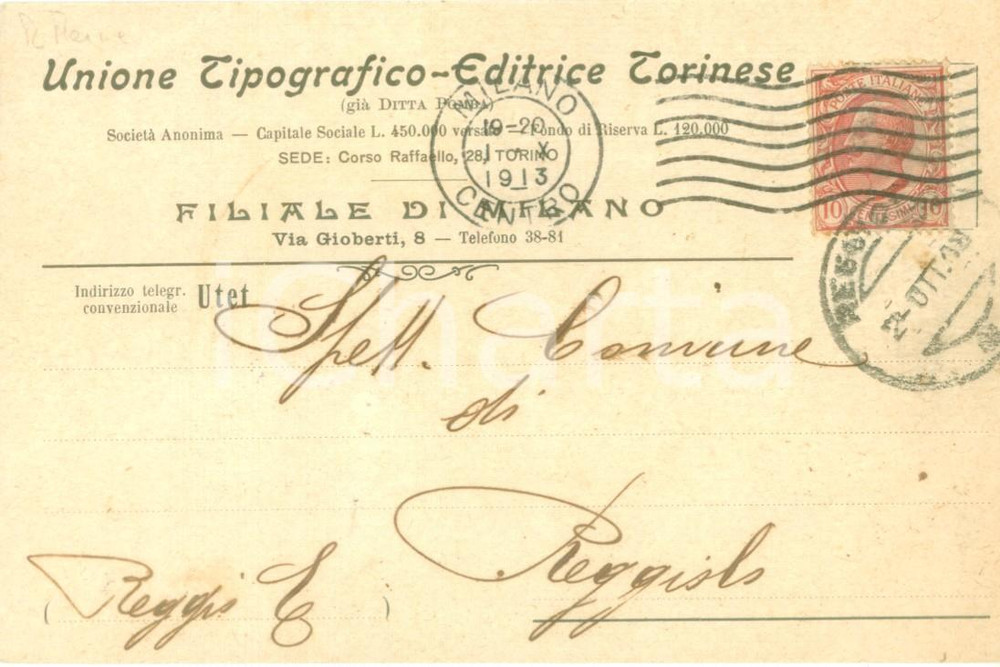 Unione Tipografico-Editrice Torinese
(già DITTA POMBA)
Società Anonima — Capitale Sociale L. 450.000 versato — Fondo di Riserva L. 120.000
SEDE: Corso Raffaello, 28, TORINO
FILIALE DI MILANO
Via Gioberti, 8 — Telefono 38-81
MILANO
19-20
1 - X
1913
CENTRO
POSTE ITALIANE
10 CENTESIMI 10
Indirizzo telegr.
convenzionale Utet
iCharta
Spett. Comune
di
Reggiolo
(Reggio E)